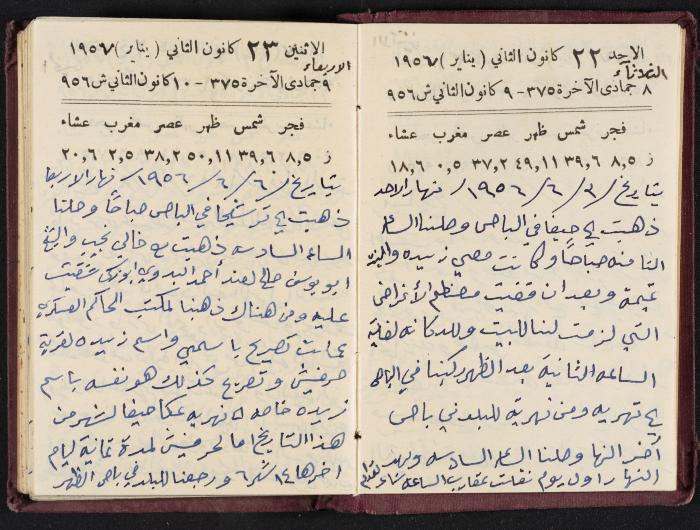 الاحد ٢٢ كانون الثاني ( يناير ) ١٩٥٦
الثلاثاء
٨ جمادى الآخرة ٣٧٥ - ٩ كانون الثاني ش ٩٥٦
فجر شمس ظهر عصر مغرب عشاء
ز ٨,٥ ٣٩,٦ ٤٩,١١ ٣٧,٢ ٠,٥ ١٨,٦
بتاريخ / ٦ / ١٩٥٦ / نهار الاحد
ذهبت الى حيفا في الباص وصلنا الساعه
الثامنه صباحاً وكانت معي زبيده
وبعد ان قضيت معظم الأغراض
التي لزمت لنا للبيت وللدكانه لغاية
الساعه الثانية بعد الظهر ركبنا في الباص
الى نهريه ومن نهرية للبلد في باص
آخر النهار وصلنا الساعه السادسه
النهار اول يوم نقلت عقارب الساعه
الاثنين ٢٣ كانون الثاني ( يناير ) ١٩٥٦
الاربعاء
٩ جمادى الآخرة ٣٧٥ - ١٠ كانون الثاني ش ٩٥٦
فجر شمس ظهر عصر مغرب عشاء
ز ٨,٥ ٣٩,٦ ٥٠,١١ ٣٨,٢ ٢,٥ ٢٠,٦
بتاريخ ٦ / ٦ / ١٩٥٦ / نهار الاربعا
ذهبت الى ترشيحا في الباص صباحاً وصلنا
الساعه السادسه ذهبت مع خالي نجيب والشيخ
ابو يوسف صالح لعند أحمد البدوي
عليه ومن هناك ذهبنا لمكتب الحاكم العسكري
عملت تصريح باسمي واسم زبيده لقرية
حرفيش وتصريح كذلك هو نفسه باسم
زبيده خاصه الى نهريه عكا حيفا لشهر من
هذا التاريخ اما لحرفيش لمدة ثمانية ايام
اخرها ١٤ شهر ٦ ورجعنا للبلد في باص الظهر